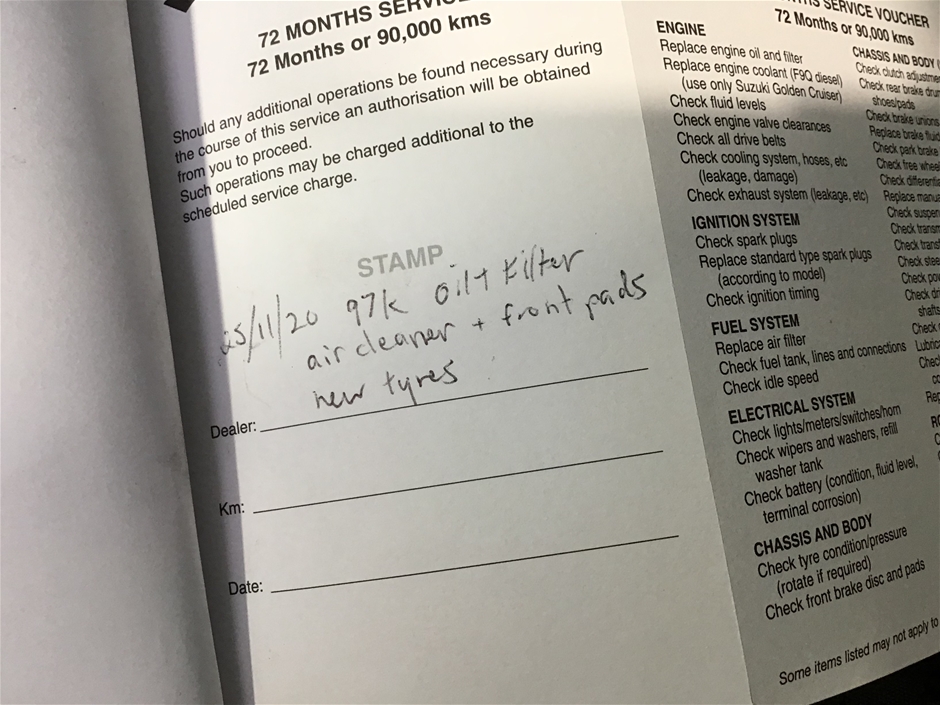 72 MONTHS SERVIC
72 Months or 90,000 kms
Should any additional operations be found necessary during
the course of this service an authorisation will be obtained
from you to proceed.
Such operations may be charged additional to the
scheduled service charge.
STAMP
25/11/20 97k Oil + Filter
air cleaner + front pads
new tyres
Dealer:
Km:
Date:
SERVICE VOUCHER
72 Months or 90,000 kms
ENGINE
Replace engine oil and filter
Replace engine coolant (F9Q diesel)
(use only Suzuki Golden Cruiser)
Check fluid levels
Check engine valve clearances
Check all drive belts
Check cooling system, hoses, etc
(leakage, damage)
Check exhaust system (leakage, etc)
IGNITION SYSTEM
Check spark plugs
Replace standard type spark plugs
(according to model)
Check ignition timing
FUEL SYSTEM
Replace air filter
Check fuel tank, lines and connections
Check idle speed
ELECTRICAL SYSTEM
Check lights/meters/switches/horn
Check wipers and washers, refill
washer tank
Check battery (condition, fluid level,
terminal corrosion)
CHASSIS AND BODY
Check tyre condition/pressure
(rotate if required)
Check front brake disc and pads
CHASSIS AND BODY (
Check clutch adjustme
Check rear brake drum
shoes/pads
Check brake unions
Replace brake fluid
Check park brake
Check free whee
Check differenti
Replace manua
Check suspen
Check transm
Check transf
Check stee
Check pow
Check dri
shafts
Check
Lubric
Check
Rep
Some items listed may not apply to